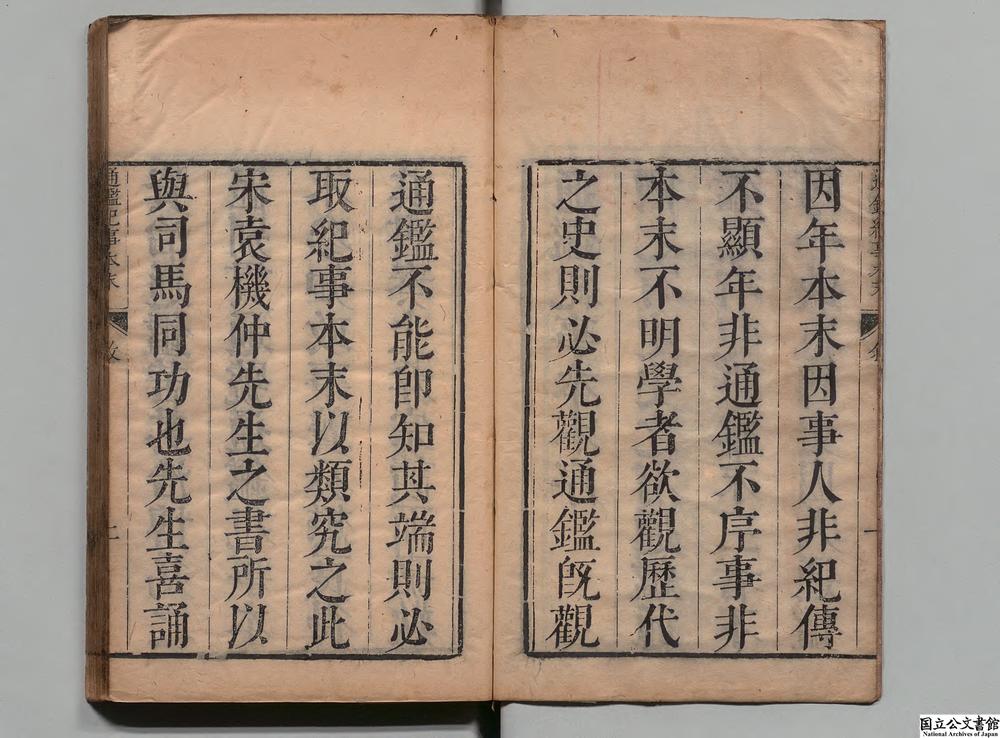 因年本末因事人非紀傳
不顯年非通鑑不序事非
本末不明學者欲觀歷代
之史則必先觀通鑑旣觀
通鑑不能卽知其端則必
取紀事本末以類究之此
宋袁機仲先生之書所以
與司馬同功也先生喜誦
通鑑紀事本末
国立公文書館
National Archives of Japan